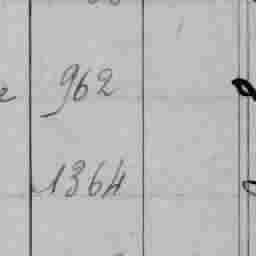 962
1364